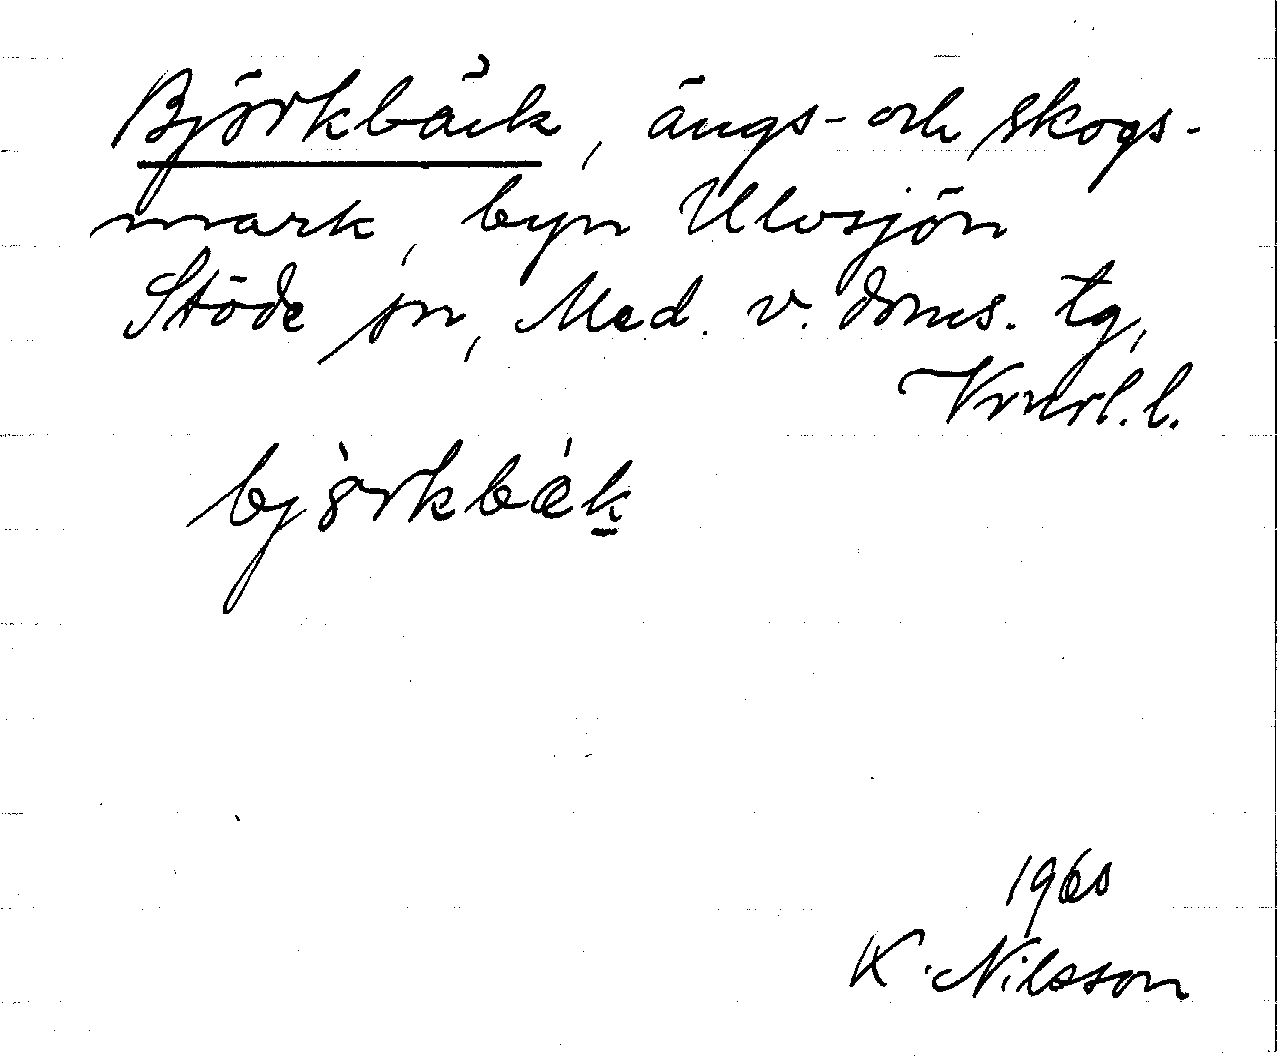 Björkbäck, ängs- och skogs-
mark, byn Ulvsjön
Stöde sn, Med. v. doms. tg,
Vnrl. l.
bjòrkbǽk̲
1960
K. Nilsson